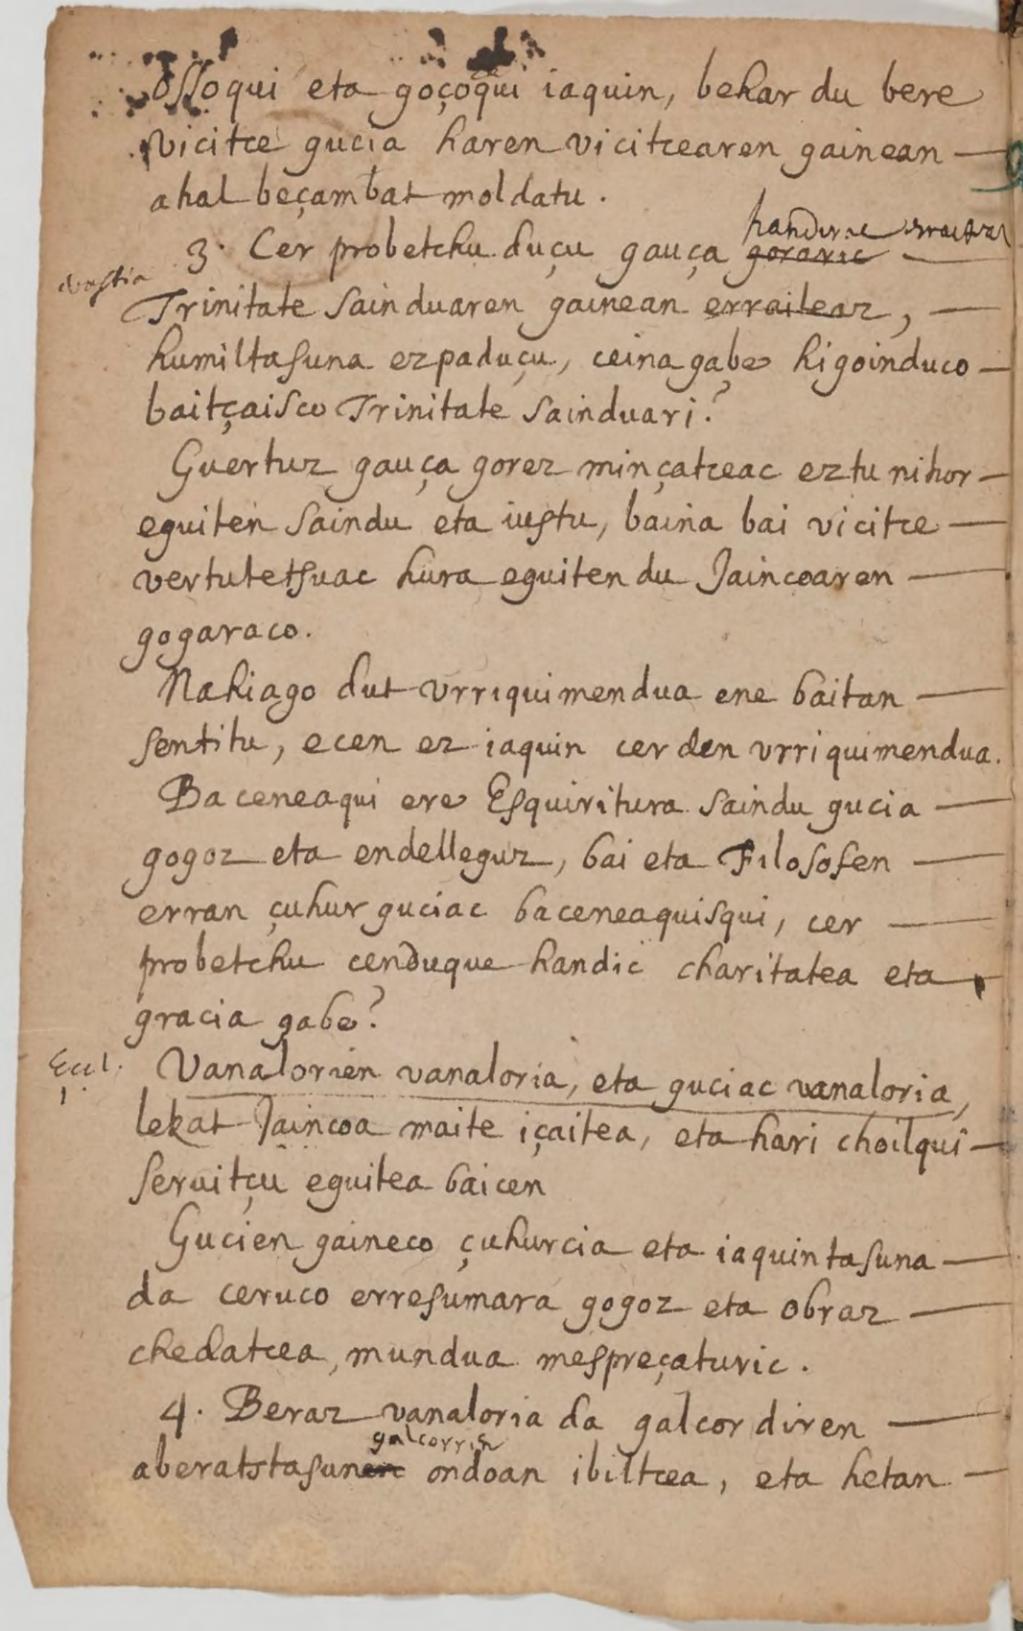 osso qui eta goçoqui iaquin, behar du bere
vicitce gucia haren vicitcearen gainean —
ahal beçambat moldatu.
handiric erraitea
3. Cer probetchu duçu gauça goraric —
Trinitate sainduaren gainean erraiteaz, —
humiltasuna ezpaduçu, ceina gabe higoinduco —
baitçaisco Trinitate sainduari?
Guertuz gauça gorez minçatceac eztu nihor —
eguiten saindu eta iustu, baina bai vicitce —
vertutetsuac hura eguiten du Jaincoaren —
gogaraco.
Nahiago dut vrriquimendua ene baitan —
sentitu, ecen ez iaquin cer den vrriquimendua.
Baceneaqui ere Esquiritura saindu gucia —
gogoz eta endelleguz, bai eta Filosofen —
erran çuhur guciac baceneaquisqui, cer —
probetchu cenduque handic charitatea eta
gracia gabe?
Eccl. Vanalorien vanaloria, eta guciac vanaloria,
1
lekat Jaincoa maite içaitea, eta hari choilqui —
seruitçu eguitea baicen
Gucien gaineco çuhurcia eta iaquintasuna —
da ceruco erresumara gogoz eta obraz —
chedatcea, mundua mespreçaturic.
4. Beraz vanaloria da galcor diren —
galcorren
aberatstasunen ondoan ibiltcea, eta hetan —